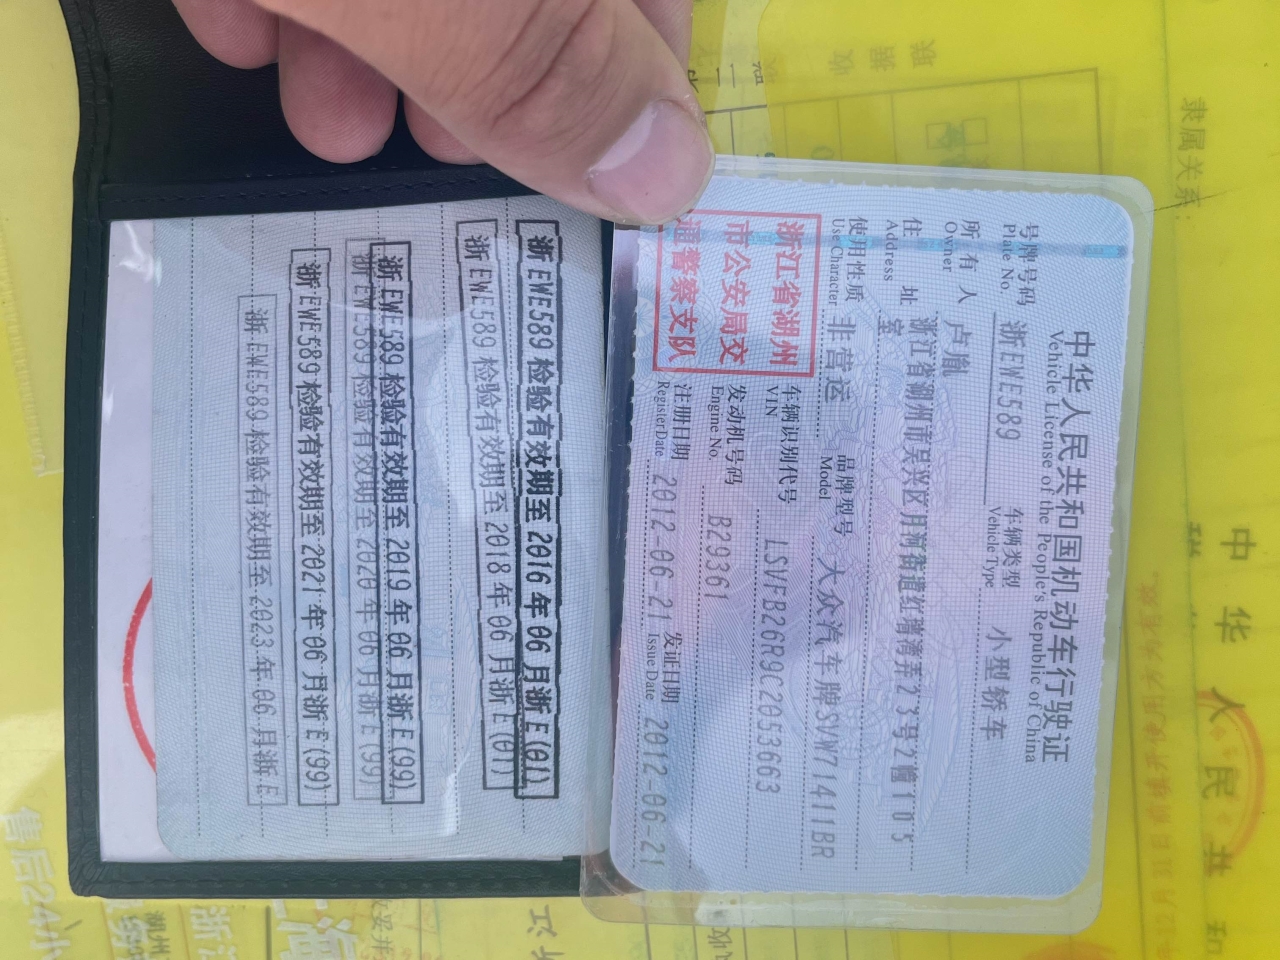 中华人民共和国机动车行驶证
Vehicle License of the People's Republic of China
号牌号码 浙EWE589 车辆类型 小型轿车
Plate No. Vehicle Type
所有人 卢胤
Owner
住址 浙江省湖州市吴兴区月河街道红 湾弄23号2幢105室
Address
使用性质 非营运 品牌型号 大众汽车牌SVW71411BR
Use Character Model
浙江省湖州
市公安局交
通警察支队
车辆识别代号 LSVFB26R9C2053663
VIN
发动机号码 B29361
Engine No.
注册日期 2012-06-21 发证日期 2012-06-21
Register Date Issue Date
浙EWE589 检验有效期至 2016 年 06 月浙E(01)
浙EWE589 检验有效期至 2018 年 06 月浙E(01)
浙EWE589 检验有效期至 2019 年 06 月浙E(99)
浙EWE589 检验有效期至 2020 年 06 月浙E(99)
浙EWE589 检验有效期至 2021 年 06 月浙E(99)
浙EWE589 检验有效期至 2023 年 06 月浙E
隶属关系:
中华人民共和
售后24小